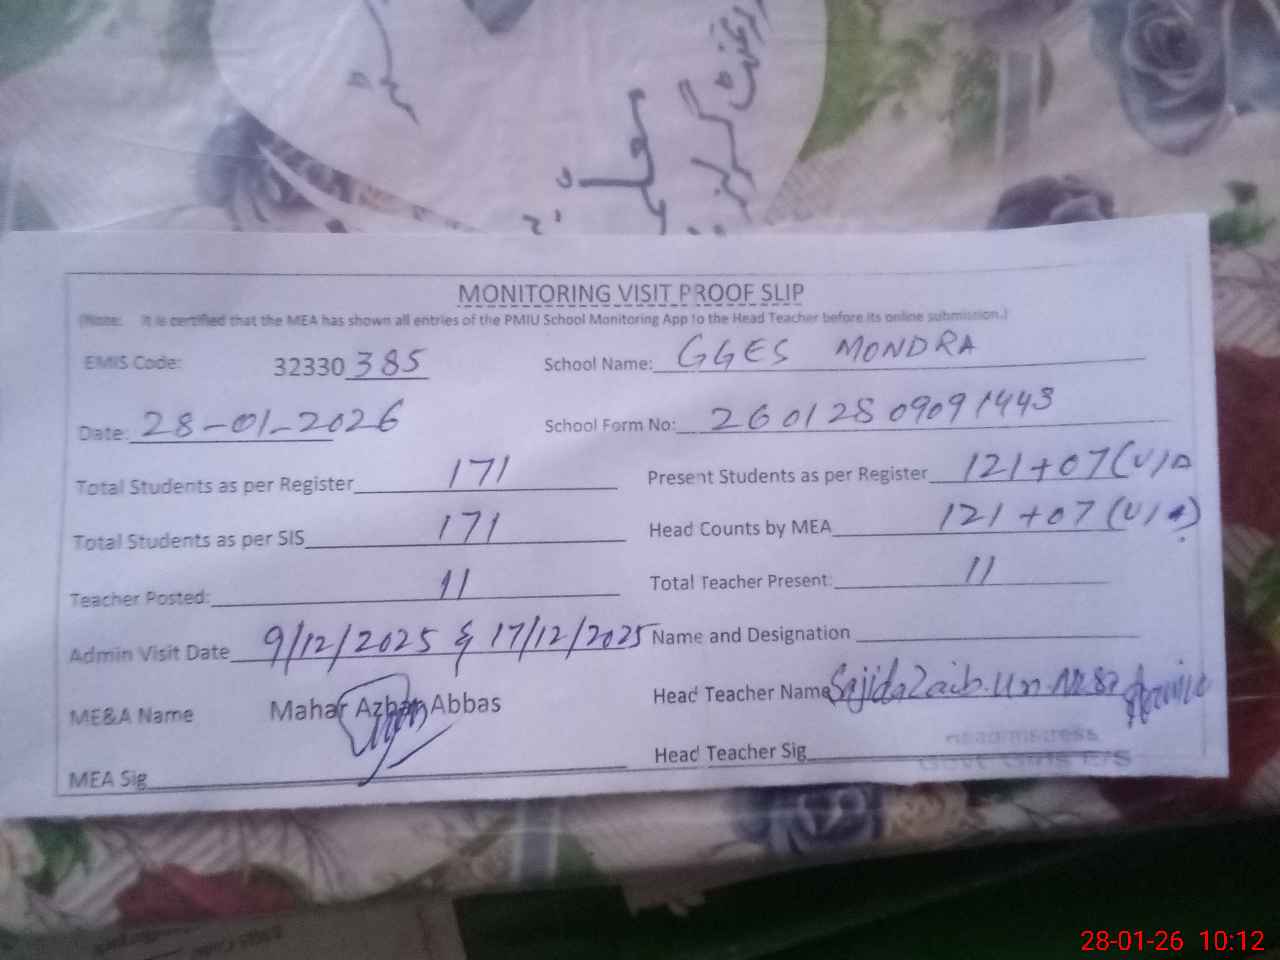 MONITORING VISIT PROOF SLIP
(Note: It is certified that the MEA has shown all entries of the PMIU School Monitoring App to the Head Teacher before its online submission.)
EMIS Code: 32330 385 School Name: GGES MONDRA
Date: 28-01-2026 School Form No: 26012809091443
Total Students as per Register 171 Present Students as per Register 121+07(U/A
Total Students as per SIS 171 Head Counts by MEA 121+07(U/A)
Teacher Posted: 11 Total Teacher Present: 11
Admin Visit Date 9/12/2025 & 17/12/2025 Name and Designation
ME&A Name Mahar Azhar Abbas Head Teacher Name Sajida Zaib-Un-Nisa
MEA Sig Head Teacher Sig
Headmistress
Govt Girls E/S
28-01-26 10:12